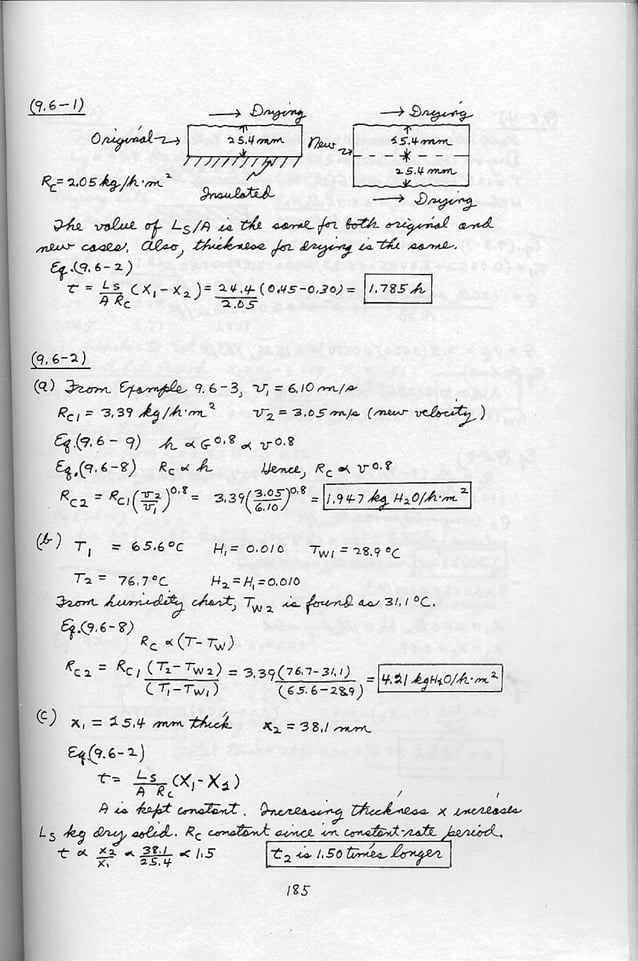 (9.6-1)
→ Drying → Drying
Original → 25.4 mm New → 25.4 mm
25.4 mm
R_C = 2.05 kg/h·m² Insulated → Drying
The value of L_S/A is the same for both original and
new cases. Also, thickness for drying is the same.
Eq.(9.6-2)
t = L_S/(A R_C) (X₁ - X₂) = 24.4/2.05 (0.45-0.30) = 1.785 h
(9.6-2)
(a) From Example 9.6-3, v₁ = 6.10 m/s
R_C1 = 3.39 kg/h·m² v₂ = 3.05 m/s (new velocity)
Eq.(9.6-9) h ∝ G^0.8 ∝ v^0.8
Eq.(9.6-8) R_C ∝ h Hence, R_C ∝ v^0.8
R_C2 = R_C1 (v₂/v₁)^0.8 = 3.39 (3.05/6.10)^0.8 = 1.947 kg H₂O/h·m²
(b) T₁ = 65.6°C H₁ = 0.010 T_W1 = 28.9°C
T₂ = 76.7°C H₂ = H₁ = 0.010
From humidity chart, T_W2 is found as 31.1°C.
Eq.(9.6-8)
R_C ∝ (T - T_W)
R_C2 = R_C1 (T₂ - T_W2)/(T₁ - T_W1) = 3.39 (76.7-31.1)/(65.6-28.9) = 4.21 kg H₂O/h·m²
(c) x₁ = 25.4 mm thick x₂ = 38.1 mm
Eq.(9.6-2)
t = L_S/(A R_C) (X₁ - X₂)
A is kept constant. Increasing thickness x increases
L_S kg dry solid. R_C constant since in constant-rate period.
t ∝ x₂/x₁ ∝ 38.1/25.4 ∝ 1.5 t₂ is 1.50 times longer
185